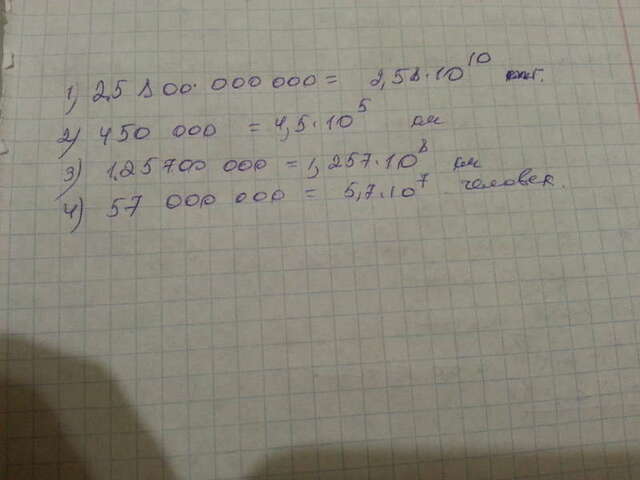 1) 25 800 000 000 = 2,58·10^10 шт.
2) 450 000 = 4,5·10^5 км
3) 125700 000 = 1,257·10^8 км
4) 57 000 000 = 5,7·10^7 человек.